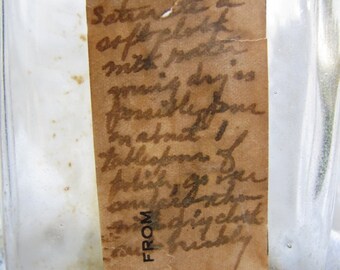 Saturate a
soft cloth
with water
wring dry as
possible pour
on about 1
tablespoon of
polish, go over
surface then
dry cloth
rub briskly
FROM